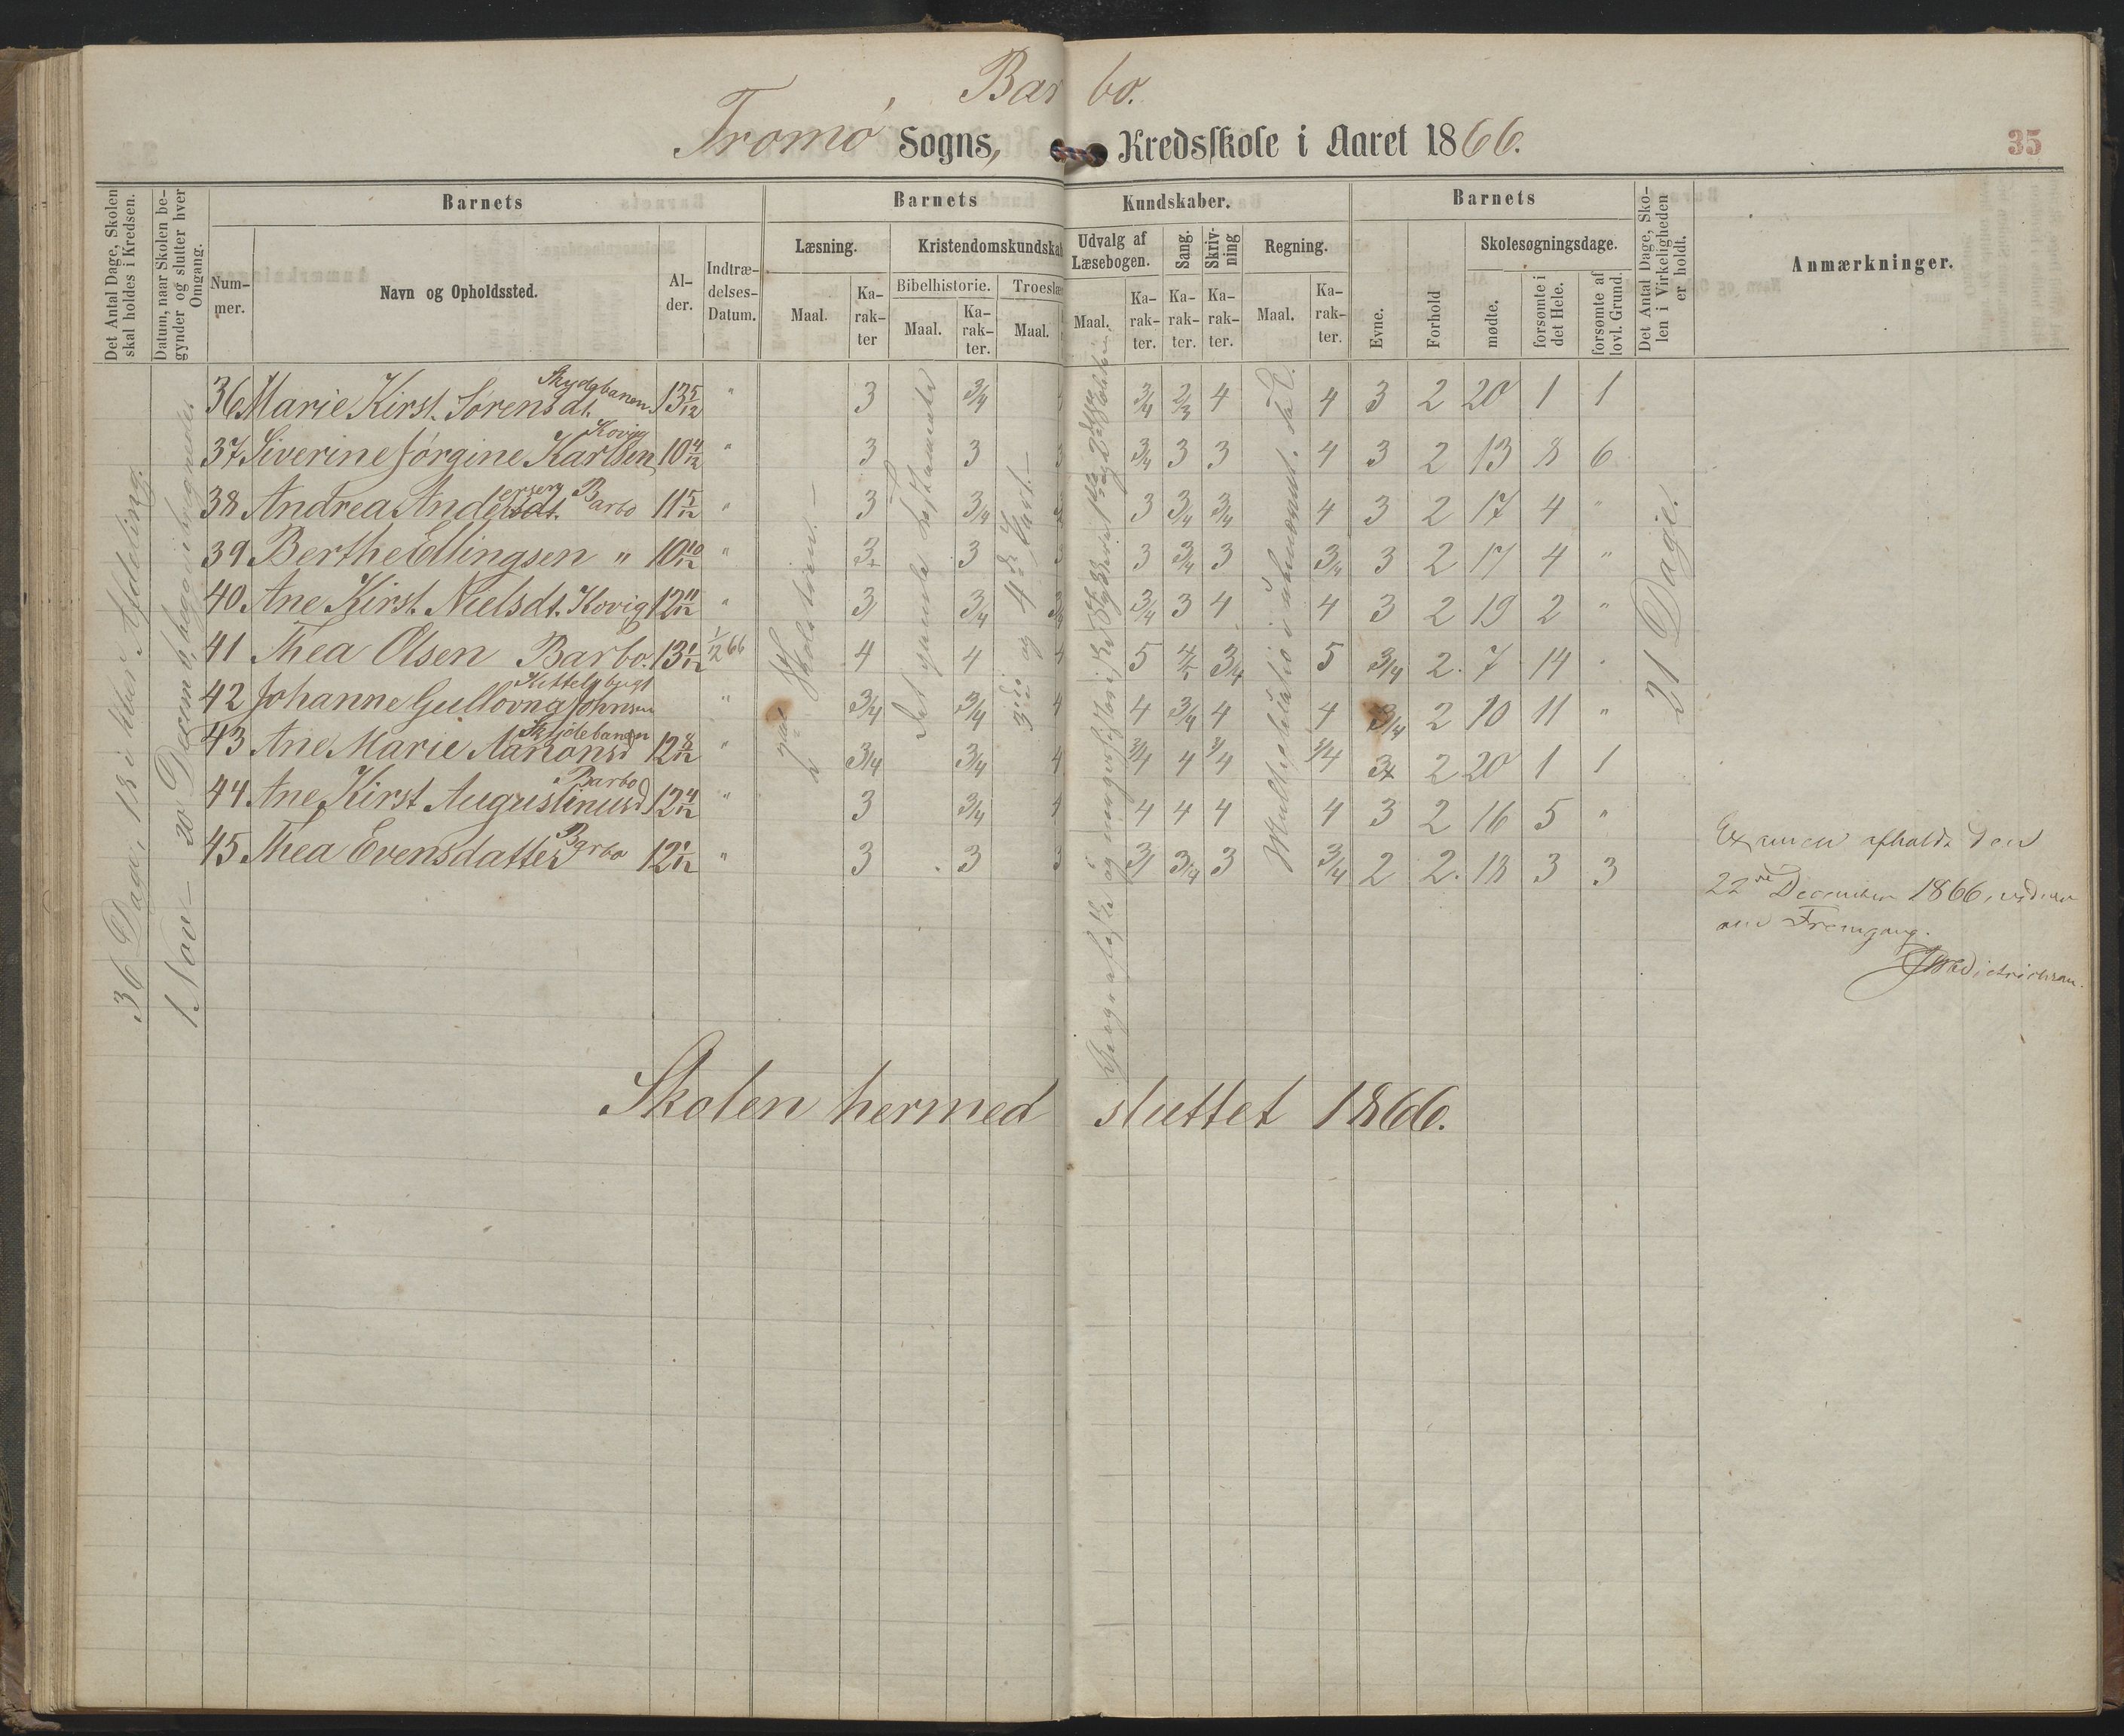 Barbo.
Tromø Sogns, Kredsskole i Aaret 1866.
35
Det Antal Dage, Skolen skal holdes i Kredsen.
Datum, naar Skolen begynder og slutter hver Omgang.
Barnets
Nummer.
Navn og Opholdssted.
Alder.
Indtrædelses-Datum.
Barnets Kundskaber.
Læsning.
Maal.
Karakter
Kristendomskundskab
Bibelhistorie.
Maal.
Karakter.
Troeslære
Maal.
Udvalg af Læsebogen.
Maal.
Karakter.
Sang.
Karakter.
Skrivning
Karakter.
Regning.
Maal.
Karakter.
Barnets
Evne.
Forhold
Skolesøgningsdage.
mødte.
forsømte i det Hele.
forsømte af lovl. Grund.
Det Antal Dage, Skolen i Virkeligheden er holdt.
Anmærkninger.
36 Dage, 18 i hver Afdeling.
1 Nov – 20 Decem b, begge iberegnede
36 Marie Kirst. Sørensdt. Skydebanen 13 5/12 " 3 3/4 4 3/4 2/3 4 4 3 2 20 1 1
37 Siverine Jørgine Karlsen Kovig 10 4/12 " 3 3 3 3/4 3 3 4 3 2 13 8 6
38 Andrea Andersdt. ersen Barbo 11 5/12 " 3 3/4 3 3/4 3/4 4 3 2 17 4 "
39 Berthe Ellingsen " 10 10/12 " 3 3 3 3 3/4 3 3/4 3 2 17 4 "
40 Ane Kirst. Nielsdt. Kovig 12 11/12 " 3 3/4 3/4 3/4 3 4 4 3 2 19 2 "
41 Thea Olsen Barbo. 13 1/12 1/12 66 4 4 4 5 4/5 3/4 5 3/4 2. 7 14
42 Johanne Gullovna Johnsen " 3/4 3/4 4 4 3/4 4 4 3/4 2 10 11 "
43 Ane Marie Aanonsd Skydebanen 12 8/12 " 3/4 3/4 4 3/4 4 3/4 3/4 2 20 1 1
44 Ane Kirst Augustinusd Barbo 12 4/12 " 3 3/4 4 4 4 4 4 3 2 16 5 "
45 Thea Evensdatter Barbo 12 1/12 " 3 3 3 3/4 3 3/4 2 2. 18 3 3
Det gamle Testamente
3die og 4de Part.
21 Dage.
Examen afholdt den
22de December 1866,
Fremgang.
Dietrichson.
Skolen hermed sluttet 1866.